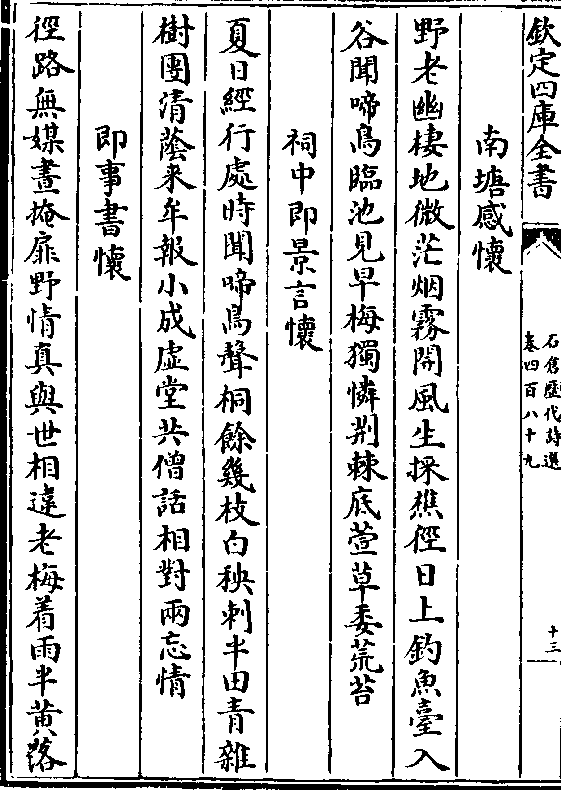 欽定四庫全書
石倉歷代詩選
卷四百八十九
十三
南塘感懷
野老幽棲地微茫烟霧開風生採樵徑日上釣魚臺入
谷聞啼鳥臨池見早梅獨憐荆棘底萱草委荒苔
祠中即景言懷
夏日經行處時聞啼鳥聲桐餘幾枝白秧刺半田青雜
樹團清蔭来牟報小成虚堂共僧話相對兩忘情
即事書懷
徑路無媒晝掩扉野情真與世相違老梅着雨半黄落